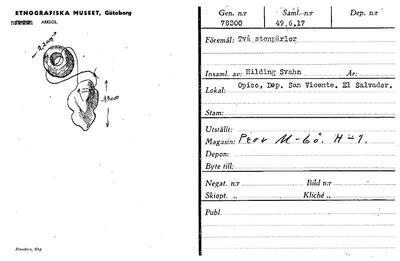 ETNOGRAFISKA MUSEET, Göteborg
ARKEOL.
Gen. n:r
Saml. n:r
Dep. n:r
78300
49.6.17
Föremål: Två stenpärlor
Insaml. av: Hilding Svahn År:
Lokal: Opico, Dep. San Vicente, El Salvador.
Stam:
Utställt:
Magasin: Perv M-60. H-1.
Depon:
Byte till:
Negat. n:r Bild n:r
Skiopt. „ Kliché „
Publ.